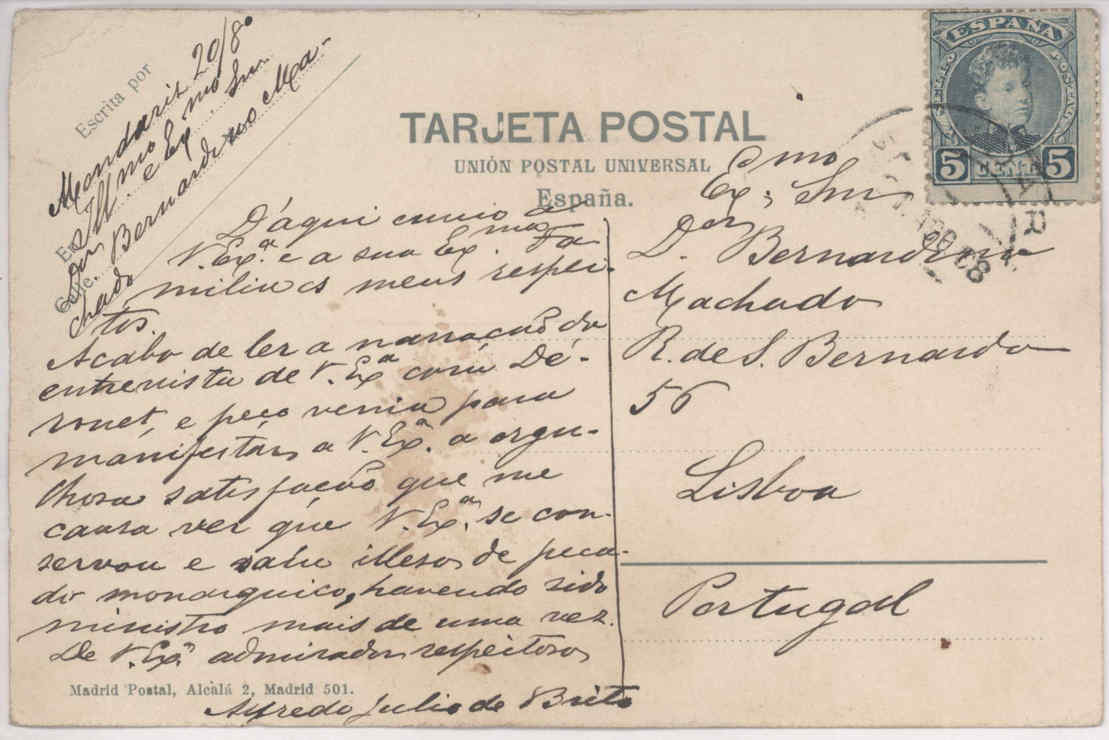 Escrita por
Mondariz 20/8º
Illmo e Exmo Snr
Dor Bernardino Ma-
chado
TARJETA POSTAL
UNIÓN POSTAL UNIVERSAL
España.
ESPAÑA
5 CENT. 5
D'aqui envio a
V. Exª e a sua Exma Fa-
milia os meus respei-
tos.
Acabo de ler a narração da
entrevista de V. Exª com Dé-
ronet, e peço venia para
manifestar a V. Exª a orgu-
lhosa satisfação que me
causa ver que V. Exª se con-
servou e saiu illeso de peca-
do monarquico, havendo sido
ministro mais de uma vez.
De V. Exª admirador respeitoso
Alfredo Julio de Brito
Exmo Snr
Dor Bernardino
Machado
R. de S. Bernardo
56
Lisboa
Portugal
Madrid Postal, Alcalá 2, Madrid 501.